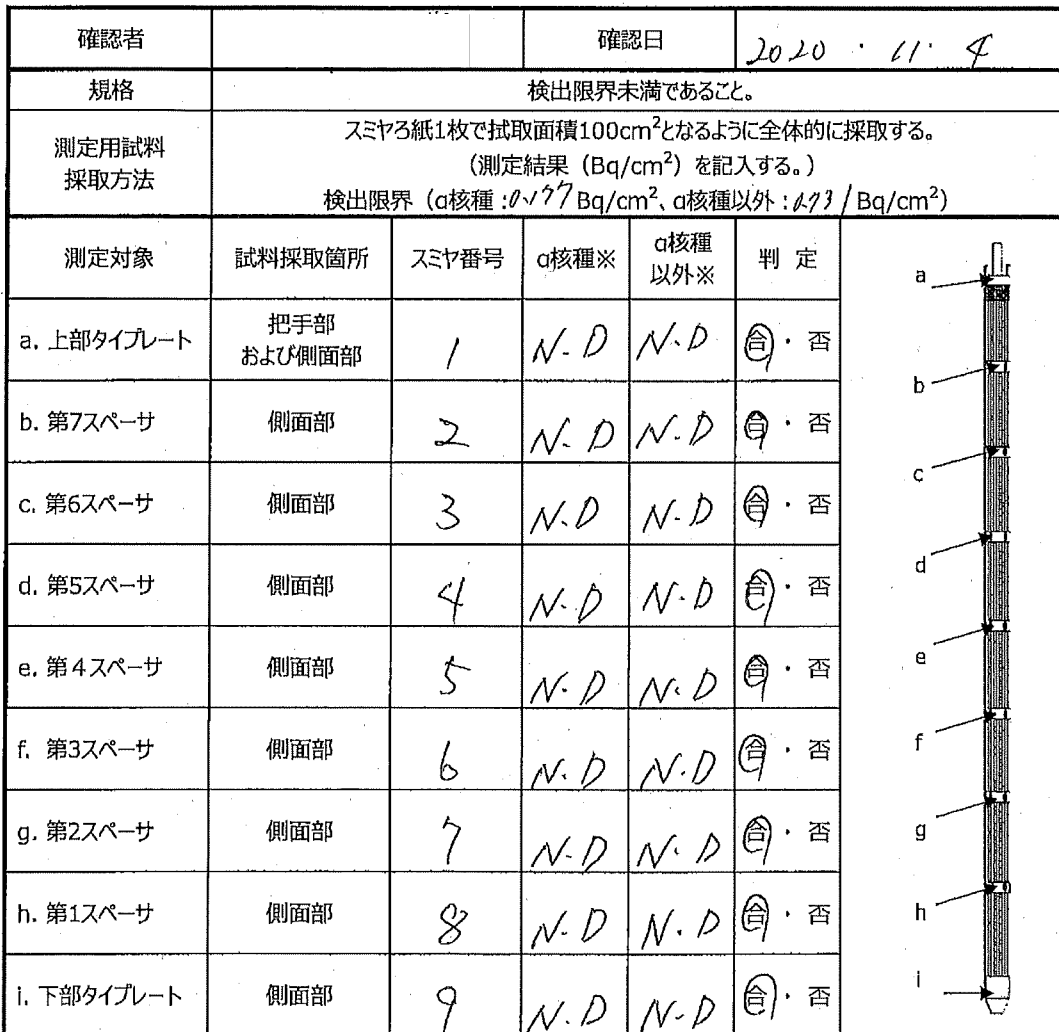 確認者 確認日 2020・11・4
規格 検出限界未満であること。
測定用試料
採取方法
スミヤろ紙1枚で拭取面積100cm²となるように全体的に採取する。
(測定結果(Bq/cm²)を記入する。)
検出限界(α核種: Bq/cm²、α核種以外: Bq/cm²)
測定対象 試料採取箇所 スミヤ番号 α核種※ α核種以外※ 判 定
a. 上部タイプレート 把手部および側面部 1 N.D N.D 合・否
b. 第7スペーサ 側面部 2 N.D N.D 合・否
c. 第6スペーサ 側面部 3 N.D N.D 合・否
d. 第5スペーサ 側面部 4 N.D N.D 合・否
e. 第4スペーサ 側面部 5 N.D N.D 合・否
f. 第3スペーサ 側面部 6 N.D N.D 合・否
g. 第2スペーサ 側面部 7 N.D N.D 合・否
h. 第1スペーサ 側面部 8 N.D N.D 合・否
i. 下部タイプレート 側面部 9 N.D N.D 合・否
a
b
c
d
e
f
g
h
i